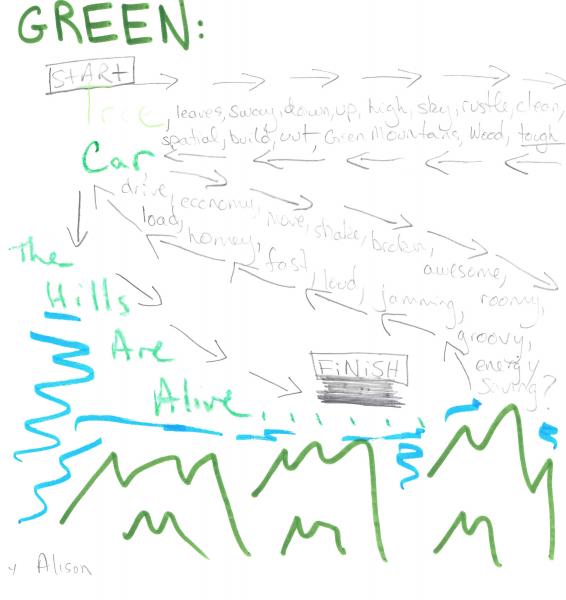 GREEN:
START
Tree, leaves, sway, down, up, high, sky, rustle, clean,
spatial, build, out, Green Mountains, Wood, tough
Car,
drive, economy, move, shake, broken, awesome, roomy,
load, homey, fast, loud, jamming, groovy,
energy
saving?
The
Hills
Are
Alive.......
FiNiSH
y Alison